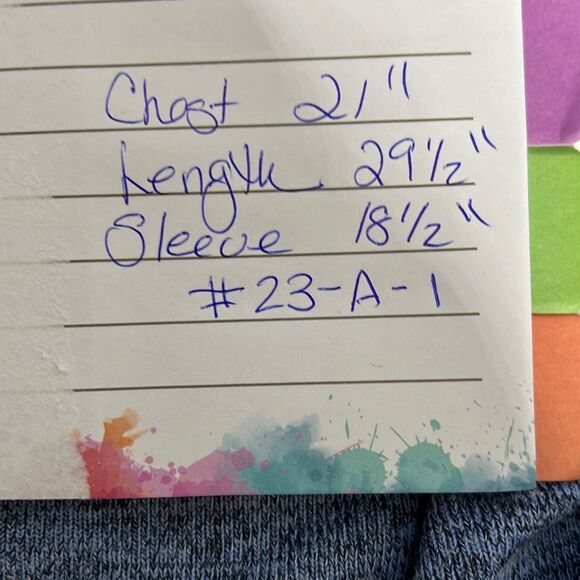 Chest 21"
Length 29 1/2"
Sleeve 18 1/2"
#23-A-1